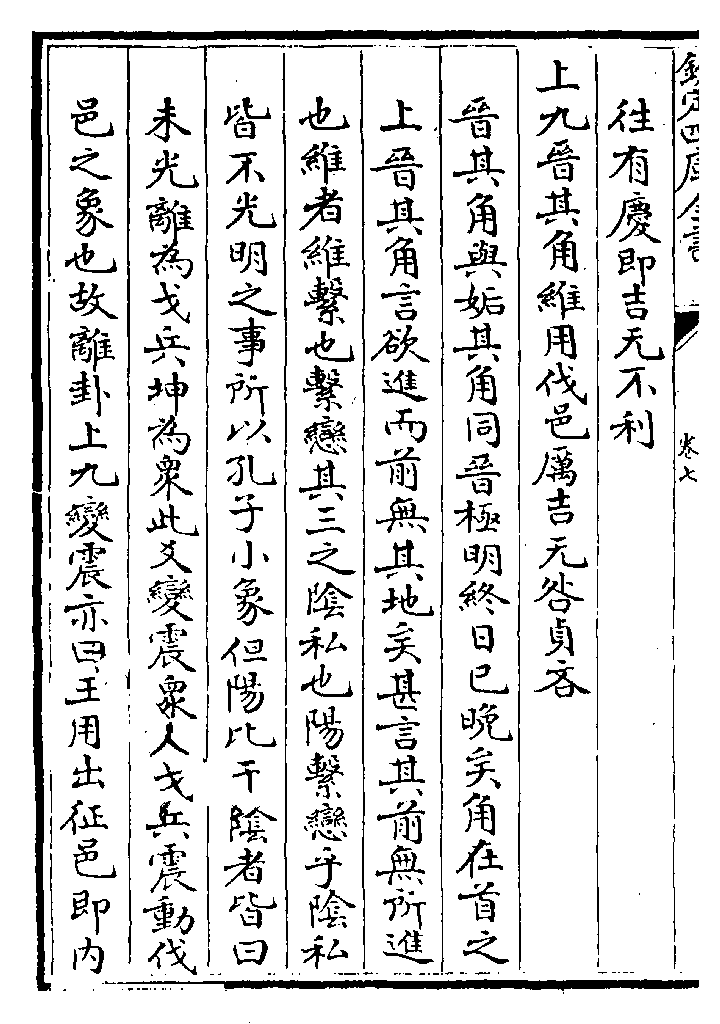 欽定四庫全書
卷七
往有慶即吉无不利
上九晉其角維用伐邑厲吉无咎貞吝
晉其角與姤其角同晉極明終日已晚矣角在首之
上晉其角言欲進而前無其地矣甚言其前無所進
也維者維繫也繫戀其三之陰私也陽繫戀乎陰私
皆不光明之事所以孔子小象但陽比于陰者皆曰
未光離為戈兵坤為衆此爻變震衆人戈兵震動伐
邑之象也故離卦上九變震亦曰王用出征邑即內